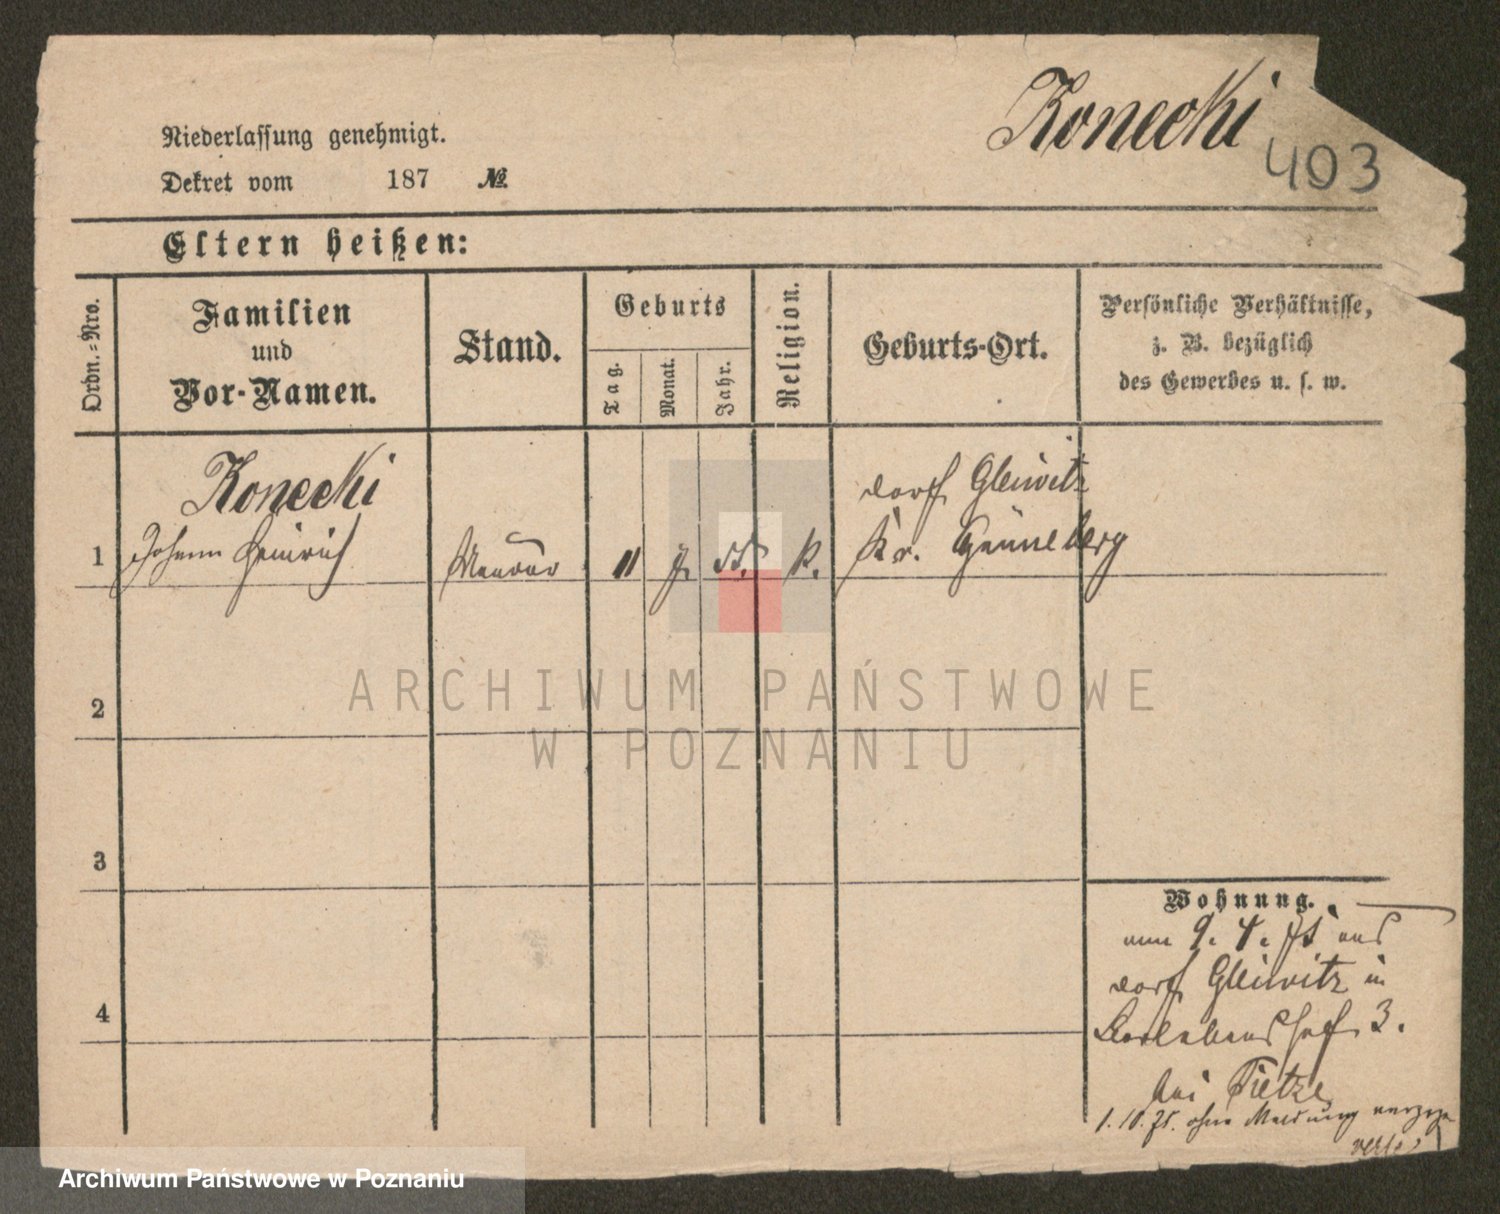 Konecki
403
Niederlassung genehmigt.
Dekret vom 187 №
Eltern heißen:
Ordn.-Nro.
Familien
und
Vor-Namen.
Stand.
Geburts
Tag.
Monat.
Jahr.
Religion.
Geburts-Ort.
Persönliche Verhältnisse,
z. B. bezüglich
des Gewerbes u. s. w.
Konecki
1 Johann Heinrich Maurer 11 k.
dorf Gleiwitz
Kr. Grüneberg
2
3
4
Wohnung.
9. 4. 75 aus
dorf Gleiwitz in
3.
bei Tietze
1. 10. 75. ohne Meldung
ARCHIWUM PAŃSTWOWE
W POZNANIU
Archiwum Państwowe w Poznaniu